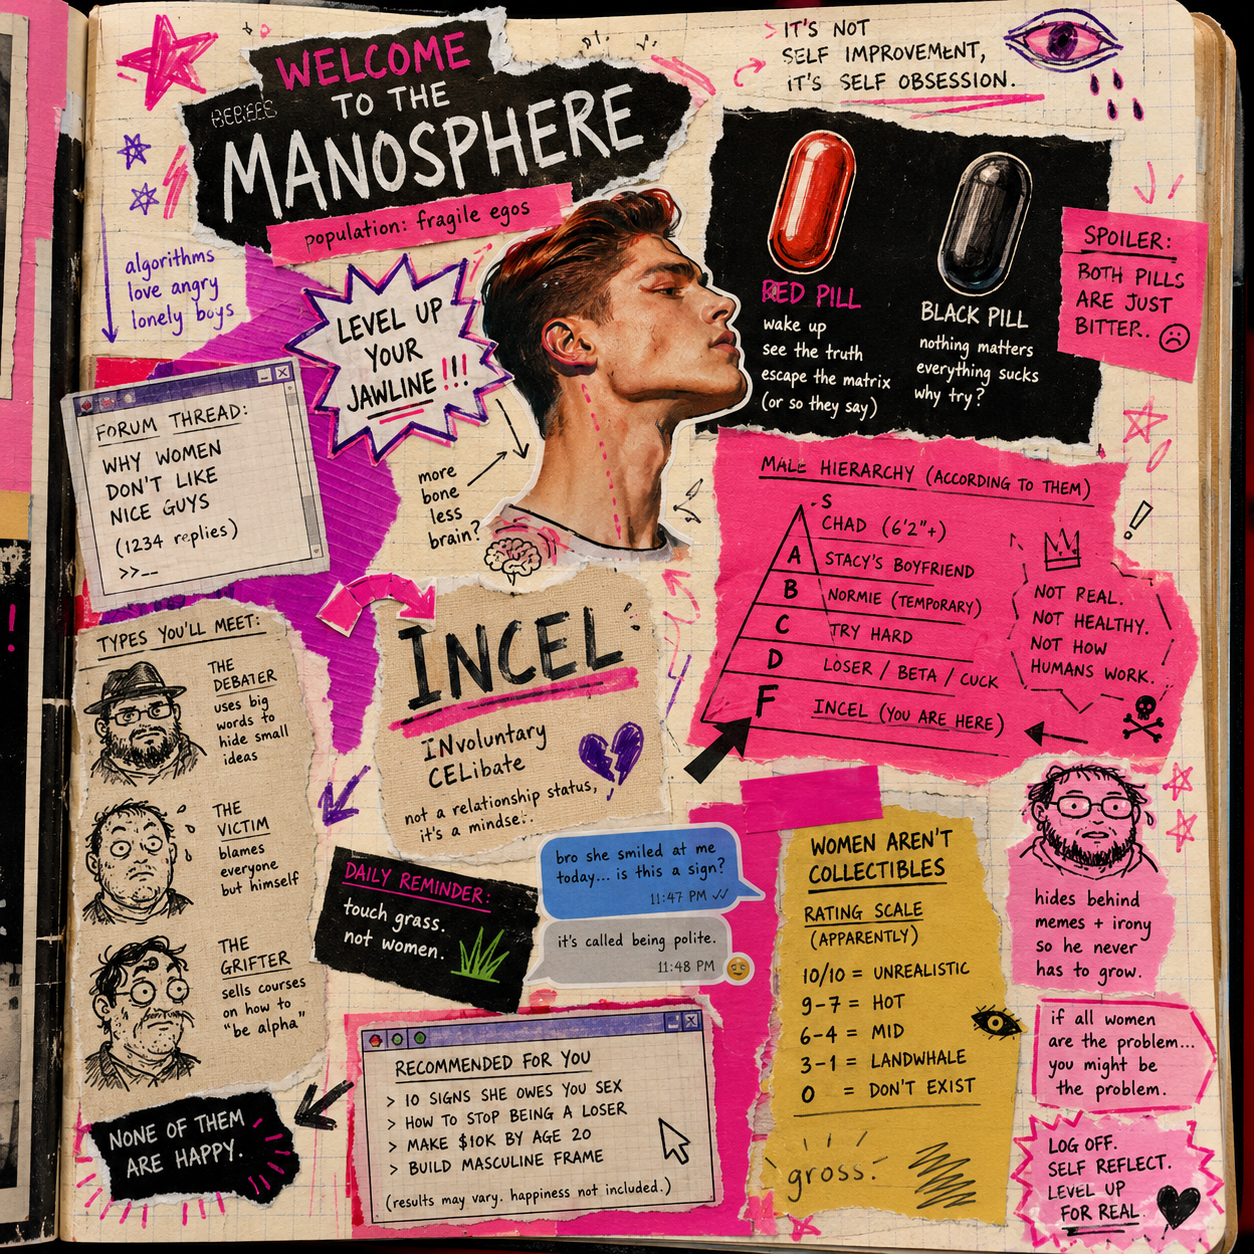 WELCOME
TO THE
MANOSPHERE
population: fragile egos
IT'S NOT
SELF IMPROVEMENT,
IT'S SELF OBSESSION.
algorithms
love angry
lonely boys
LEVEL UP
YOUR
JAWLINE!!!
more
bone
less
brain?
RED PILL
wake up
see the truth
escape the matrix
(or so they say)
BLACK PILL
nothing matters
everything sucks
why try?
SPOILER:
BOTH PILLS
ARE JUST
BITTER.
FORUM THREAD:
WHY WOMEN
DON'T LIKE
NICE GUYS
(1234 replies)
>>__
MALE HIERARCHY (ACCORDING TO THEM)
S CHAD (6'2"+)
A STACY'S BOYFRIEND
B NORMIE (TEMPORARY)
C TRY HARD
D LOSER / BETA / CUCK
F INCEL (YOU ARE HERE)
NOT REAL.
NOT HEALTHY.
NOT HOW
HUMANS WORK.
TYPES YOU'LL MEET:
THE
DEBATER
uses big
words to
hide small
ideas
THE
VICTIM
blames
everyone
but himself
THE
GRIFTER
sells courses
on how to
"be alpha"
NONE OF THEM
ARE HAPPY.
INCEL
INvoluntary
CELibate
not a relationship status,
it's a mindset.
DAILY REMINDER:
touch grass.
not women.
bro she smiled at me
today... is this a sign?
11:47 PM
it's called being polite.
11:48 PM
RECOMMENDED FOR YOU
> 10 SIGNS SHE OWES YOU SEX
> HOW TO STOP BEING A LOSER
> MAKE $10K BY AGE 20
> BUILD MASCULINE FRAME
(results may vary. happiness not included.)
WOMEN AREN'T
COLLECTIBLES
RATING SCALE
(APPARENTLY)
10/10 = UNREALISTIC
9-7 = HOT
6-4 = MID
3-1 = LANDWHALE
0 = DON'T EXIST
gross.
hides behind
memes + irony
so he never
has to grow.
if all women
are the problem...
you might be
the problem.
LOG OFF.
SELF REFLECT.
LEVEL UP
FOR REAL.